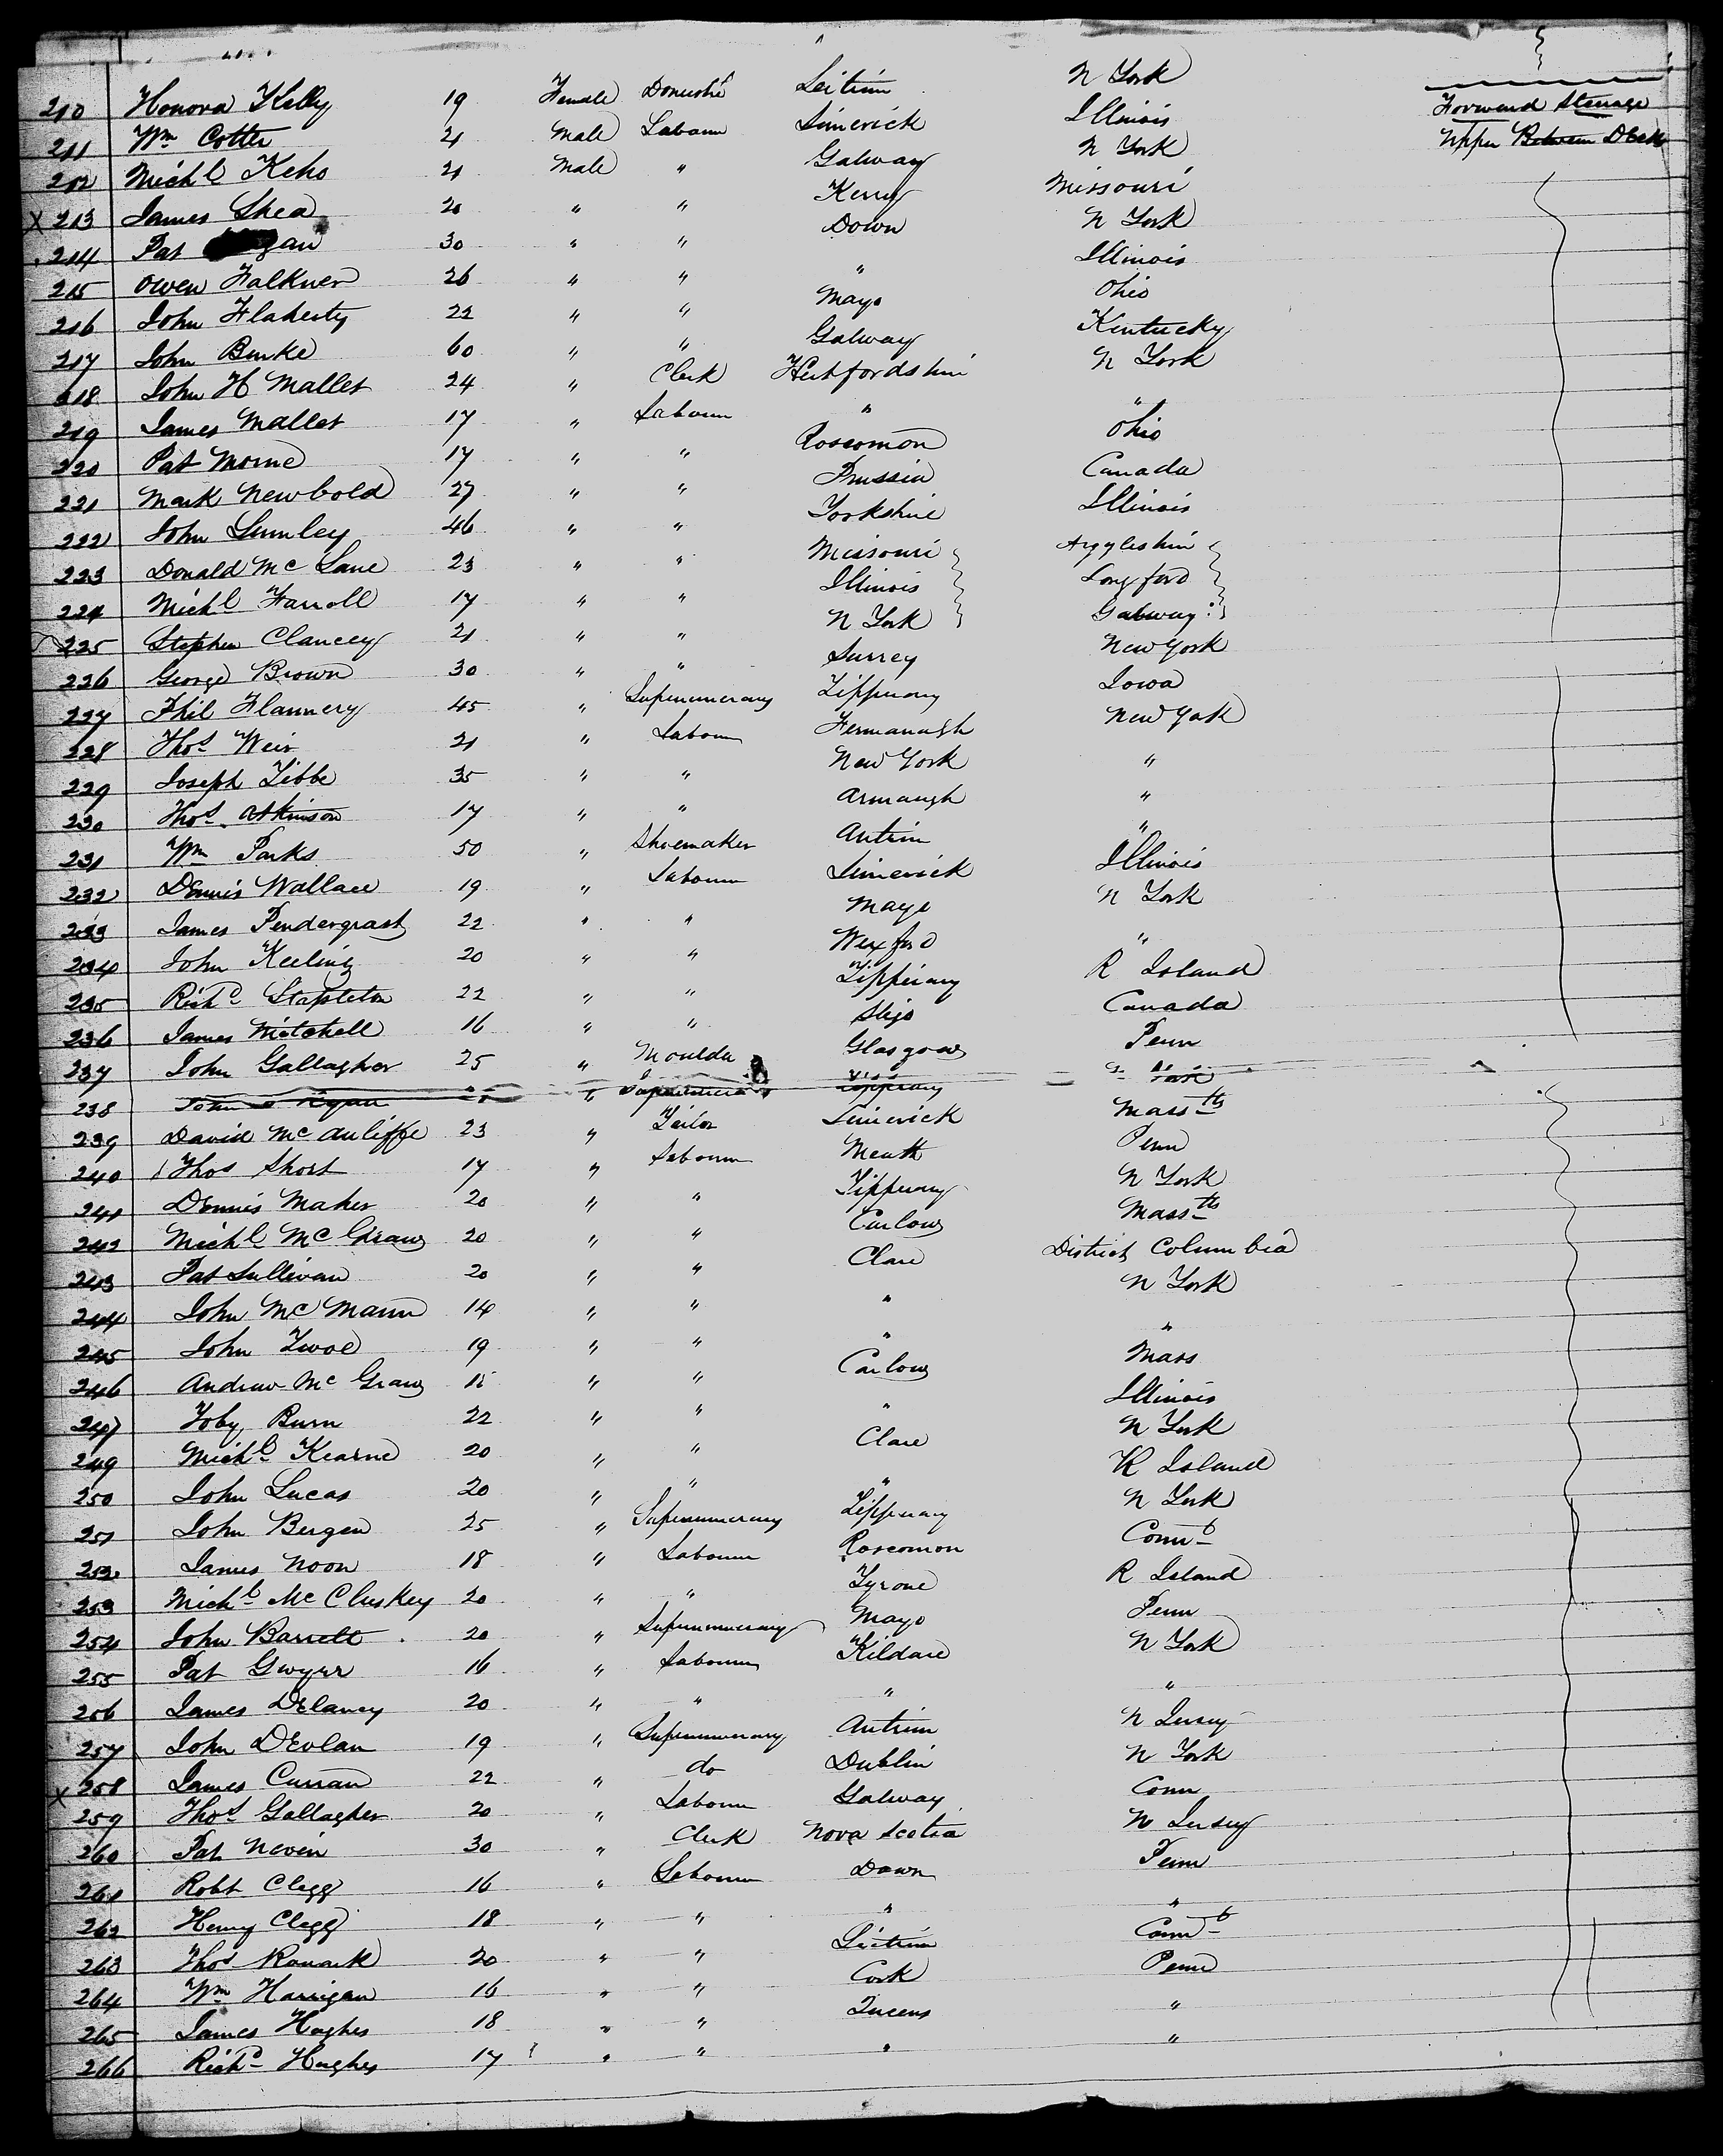 210 Honora Kelly 19 Female Domestic Leitrim N York Forward Steerage
211 Wm Cotter 21 Male Labourer Limerick Illinois Upper Between Decks
212 Michl Keho 21 Male " Galway N York
X 213 James Shea 20 " " Kerry Missouri
214 Pat 30 " " Down N York
215 Owen Falkner 26 " " " Illinois
216 John Flaherty 22 " " Mayo Ohio
217 John Burke 60 " " Galway Kentucky
218 John H Mallet 24 " Clerk Hertfordshire N York
219 James Mallet 17 " Labourer " "
220 Pat Morne 17 " " Roscomon Ohio
221 Mark Newbold 27 " " Prussia Canada
222 John Lumley 46 " " Yorkshire Illinois
223 Donald Mc Lane 23 " " Missouri Argyleshire
224 Michl Farroll 17 " " Illinois Longford
225 Stephen Clancey 21 " " N York Galway
226 George Brown 30 " " Surrey New York
227 Phil Flannery 45 " Supernumerary Tipperary Iowa
228 Thos Weir 21 " Labourer Fermanagh New York
229 Joseph Tibbe 35 " " New York "
230 Thos Atkinson 17 " " Armaugh "
231 Wm Parks 50 " Shoemaker Antrim "
232 Dennis Wallace 19 " Labourer Limerick Illinois
233 James Pendergrast 22 " " Mayo N York
234 John Keeling 20 " " Wexford "
235 Richd Stapleton 22 " " Tipperary R Island
236 James Mitchell 16 " " Sligo Canada
237 John Gallagher 25 " Moulder Glasgow Penn
238 John Ryan " Supernumerary Tipperary N York
239 David McAuliffe 23 " Tailor Limerick Massts
240 Thos Short 17 " Labourer Meath Penn
241 Dennis Maher 20 " " Tipperary N York
242 Michl McGraw 20 " " Carlow Massts
243 Pat Sullivan 20 " " Clare District Columbia
244 John McMann 14 " " " N York
245 John Twoe 19 " " " "
246 Andrew McGraw 15 " " Carlow Mass
247 Toby Burn 22 " " " Illinois
249 Michl Kearne 20 " " Clare N York
250 John Lucas 20 " " " R Island
251 John Bergen 25 " Supernumerary Tipperary N York
252 James Noon 18 " Labourer Roscomon Connt
253 Michl McCluskey 20 " " Tyrone R Island
254 John Barrett 20 " Supernumerary Mayo Penn
255 Pat Gwyer 16 " Labourer Kildare N York
256 James Delaney 20 " " " "
257 John Devlan 19 " Supernumerary Antrim N Jersey
X 258 James Curran 22 " do Dublin N York
259 Thos Gallagher 20 " Labourer Galway Conn
260 Pat Nevin 30 " Clerk Nova Scotia N Jersey
261 Robt Clegg 16 " Labourer Down Penn
262 Henry Clegg 18 " " " "
263 Thos 20 " " Leitrim Connt
264 Wm Harrigan 16 " " Cork Penn
265 James Hughes 18 " " Queens "
266 Richd Hughes 17 " " " "